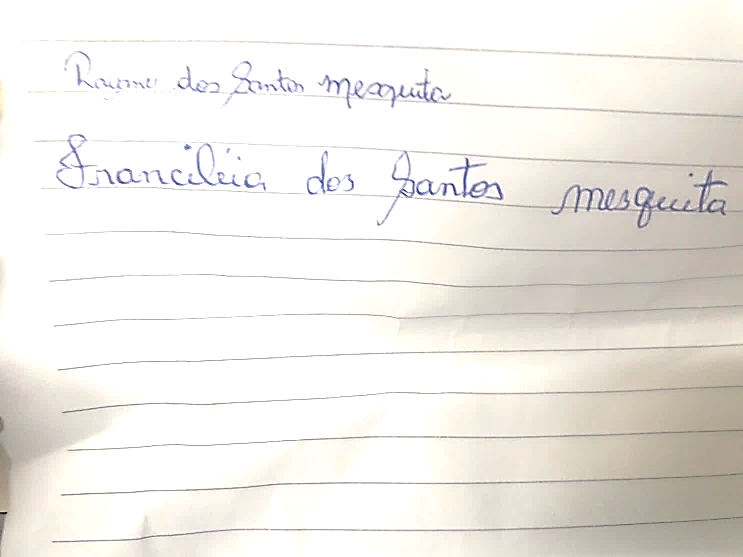 dos Santos mesquita
Franciléia dos Santos mesquita